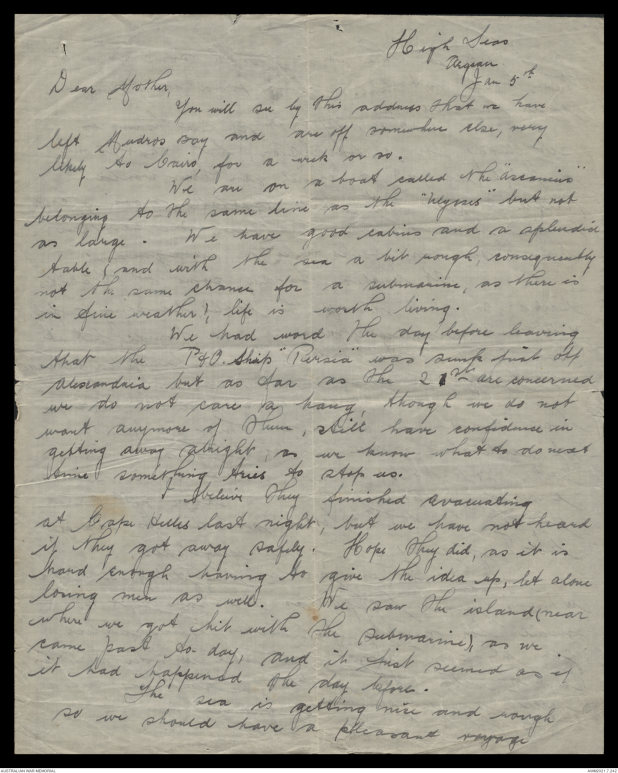 High Seas
Aegean
Jan 5th
Dear Mother,
You will see by this address that we have
left Mudros say and are off somewhere else, very
likely to Cairo, for a week or so.
We are on a boat called the "Ascanius"
belonging to the same line as the "Ulysses" but not
as large. We have good cabins and a splendid
table, and with the sea a bit rough, consequently
not the same chance for a submarine, as there is
in fine weather, life is worth living.
We had word the day before leaving
that the P&O. Ship "Persia" was sunk just off
Alexandria but as far as the 21st are concerned
we do not care a hang, though we do not
want anymore of them, still have confidence in
getting away alright, as we know what to do next
time something tries to stop us.
I beleive they finished evacuating
at Cape Helles last night, but we have not heard
if they got away safely. Hope they did, as it is
hard enough having to give the idea up, let alone
losing men as well. We saw the island (near
where we got hit with the submarine), as we
came past to-day, and it just seemed as if
it had happened the day before.
The sea is getting nice and rough
so we should have a pleasant voyage
AUSTRALIAN WAR MEMORIAL